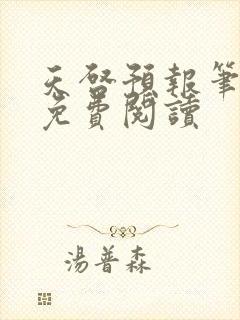 天啓預報筆
免費閱讀
湯普森